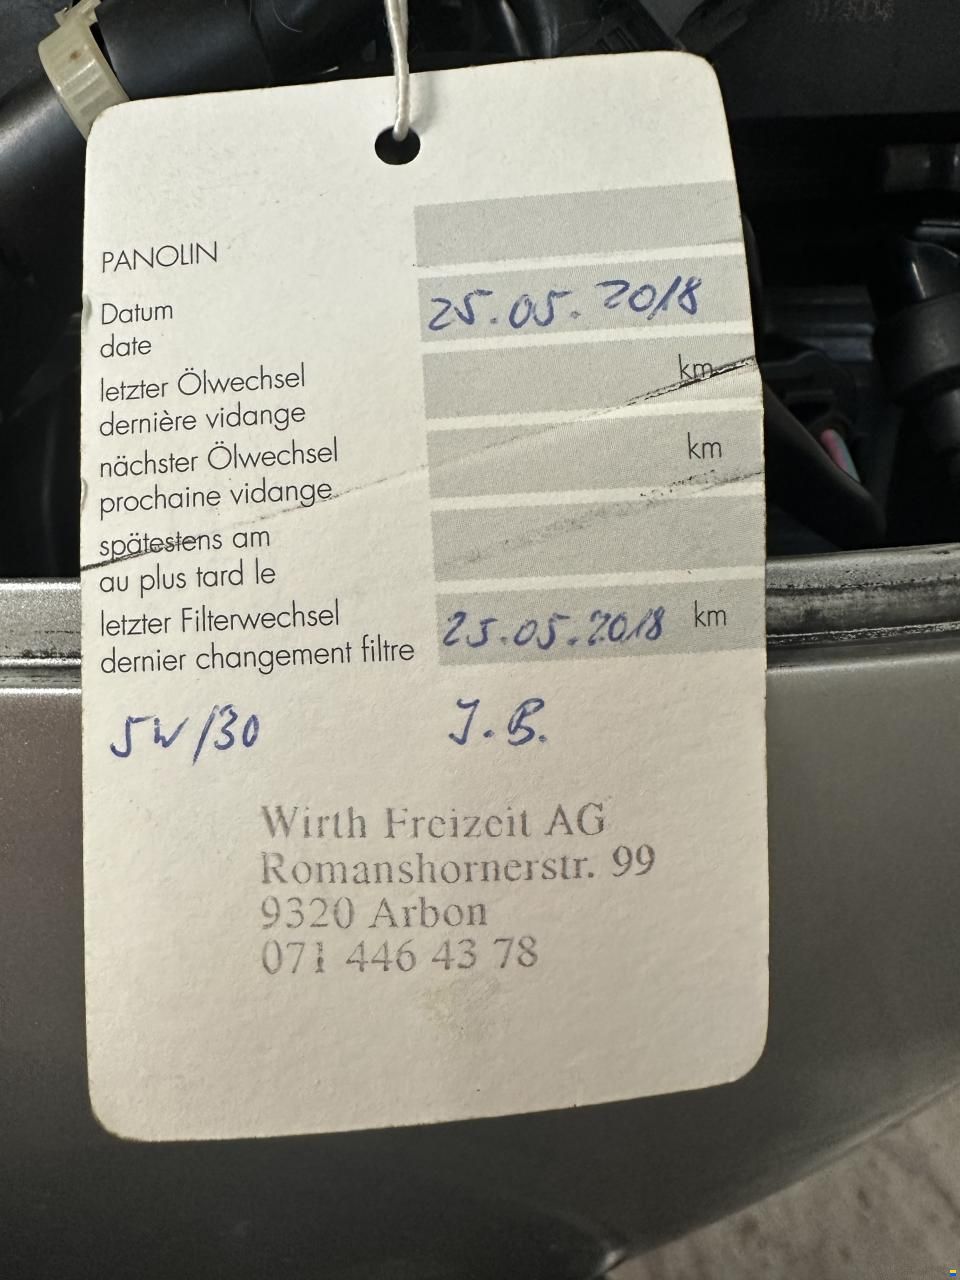 PANOLIN
Datum
date
25.05.2018
letzter Ölwechsel
dernière vidange
km
nächster Ölwechsel
prochaine vidange
km
spätestens am
au plus tard le
letzter Filterwechsel
dernier changement filtre
25.05.2018 km
5W/30 J.B.
Wirth Freizeit AG
Romanshornerstr. 99
9320 Arbon
071 446 43 78